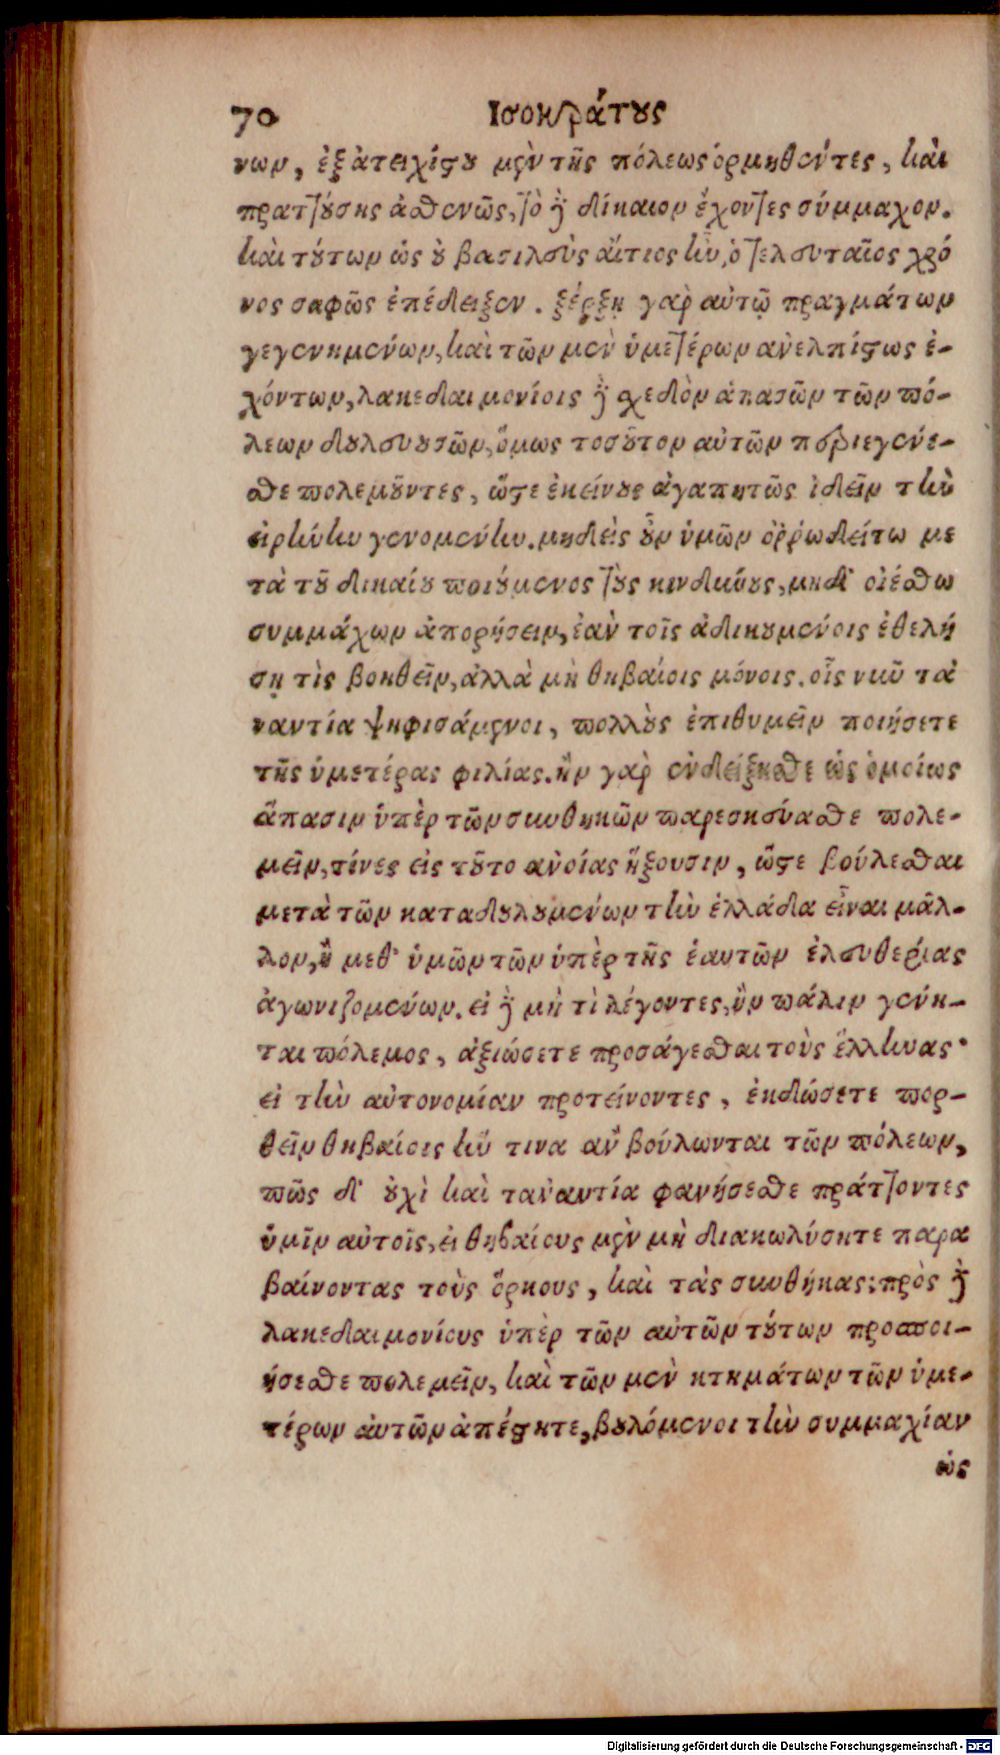 70 Ισοκράτους
νων, ἐξ ἀτειχίστου μὲν τῆς πόλεως ὁρμηθέντες, καὶ
πραττούσης ἀσθενῶς, τὸ δὲ δίκαιον ἔχοντες σύμμαχον.
καὶ τούτων ὡς οὐ βασιλεὺς αἴτιος ἦν, ὁ τελευταῖος χρό
νος σαφῶς ἐπέδειξεν. ξέρξῃ γὰρ αὐτῷ πραγμάτων
γεγενημένων, καὶ τῶν μὲν ὑμετέρων ἀνελπίστως ἐ-
χόντων, λακεδαιμονίοις δὲ σχεδὸν ἁπασῶν τῶν πό-
λεων δουλευουσῶν, ὅμως τοσοῦτον αὐτῶν περιεγένε-
σθε πολεμοῦντες, ὥστε ἐκείνους ἀγαπητῶς ἰδεῖν τὴν
εἰρήνην γενομένην. μηδεὶς οὖν ὑμῶν ὀῤῥωδείτω με
τὰ τοῦ δικαίου ποιούμενος τοὺς κινδύνους, μηδ' οἰέσθω
συμμάχων ἀπορήσειν, ἐὰν τοῖς ἀδικουμένοις ἐθελή
σῃ τὶς βοηθεῖν, ἀλλὰ μὴ θηβαίοις μόνοις. οἷς νῦν τἀ
ναντία ψηφισάμενοι, πολλοὺς ἐπιθυμεῖν ποιήσετε
τῆς ὑμετέρας φιλίας. ἢν γὰρ ἐνδείξησθε ὡς ὁμοίως
ἅπασιν ὑπὲρ τῶν συνθηκῶν παρεσκεύασθε πολε-
μεῖν, τίνες εἰς τοῦτο ἀνοίας ἥξουσιν, ὥστε βούλεσθαι
μετὰ τῶν καταδουλουμένων τὴν ἑλλάδα εἶναι μᾶλ-
λον, ἢ μεθ' ὑμῶν τῶν ὑπὲρ τῆς ἑαυτῶν ἐλευθερίας
ἀγωνιζομένων. εἰ δὲ μὴ τὶ λέγοντες, ἢν πάλιν γένη-
ται πόλεμος, ἀξιώσετε προσάγεσθαι τοὺς ἕλληνας·
εἰ τὴν αὐτονομίαν προτείνοντες, ἐκδώσετε πορ-
θεῖν θηβαίοις ἥν τινα ἂν βούλωνται τῶν πόλεων,
πῶς δ' οὐχὶ καὶ τἀναντία φανήσεσθε πράττοντες
ὑμῖν αὐτοῖς, εἰ θηβαίους μὲν μὴ διακωλύσητε παρα
βαίνοντας τοὺς ὅρκους, καὶ τὰς συνθήκας; πρὸς δὲ
λακεδαιμονίους ὑπὲρ τῶν αὐτῶν τούτων προσποι-
ήσεσθε πολεμεῖν, καὶ τῶν μὲν κτημάτων τῶν ὑμε-
τέρων αὐτῶν ἀπέστητε, βουλόμενοι τὴν συμμαχίαν
ὡς
Digitalisierung gefördert durch die Deutsche Forschungsgemeinschaft - DFG